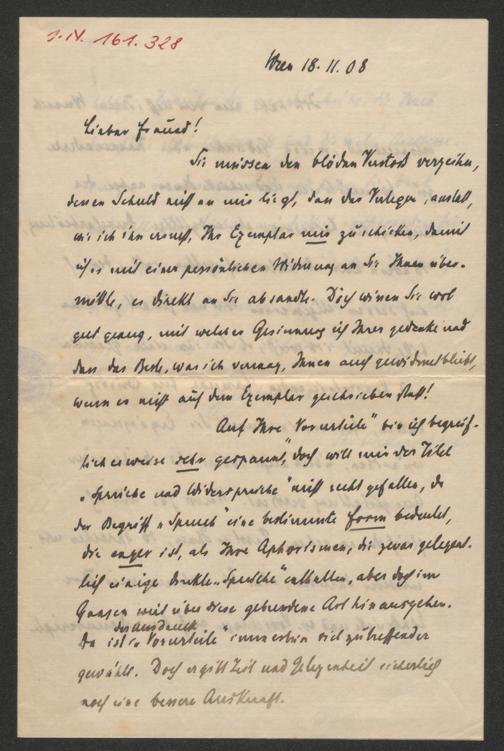 I.N. 161.328
Wien 18. 11. 08
Lieber Freund!
Sie müssen den blöden Verstoß verzeihen,
dessen Schuld nicht an mir liegt, denn der Verleger, anstatt,
wie ich ihn ersucht, Ihr Exemplar mir zu schicken, damit
ich es mit einer persönlichen Widmung an Sie Ihnen über-
mittle, es direkt an Sie absandte. Doch wissen Sie wol
gut genug, mit welcher Gesinnung ich Ihrer gedenke und
dass das Beste, was ich vermag, Ihnen auch gewidmet bleibt,
wenn es nicht auf dem Exemplar geschrieben steht!
Auf Ihre „Vorurteile" bin ich begreif-
licherweise sehr gespannt, doch will mir der Titel
„Sprüche und Widersprüche" nicht recht gefallen, da
der Begriff „Spruch" eine bestimmte Form bedeutet,
die enger ist, als Ihre Aphorismen, die zwar gelegent-
lich einige direkte „Sprüche" enthalten, aber doch im
Ganzen weit über diese gebundene Art hinausgehen.
Da ist der Ausdruck „Vorurteile" immerhin viel zutreffender
gewählt. Doch ergibt Zeit und Gelegenheit sicherlich
noch eine bessere Auskunft.